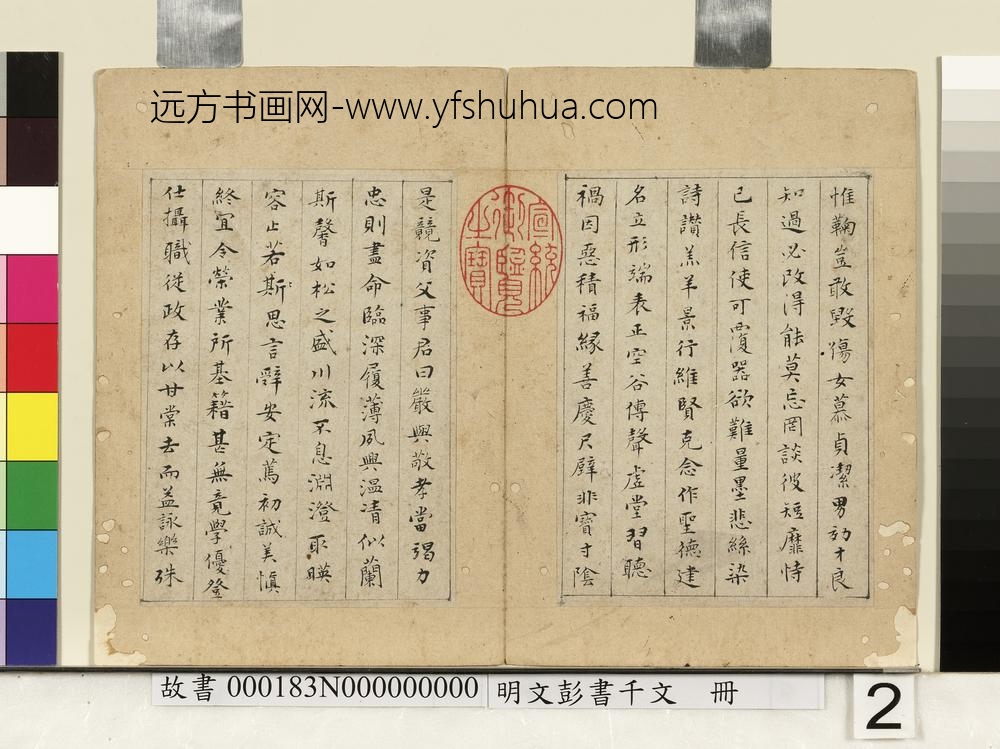 远方书画网-www.yfshuhua.com
惟鞠豈敢毀傷女慕貞潔男効才良
知過必改得能莫忘罔談彼短靡恃
己長信使可覆器欲難量墨悲絲染
詩讚羔羊景行維賢克念作聖德建
名立形端表正空谷傳聲虛堂習聽
禍因惡積福緣善慶尺璧非寶寸陰
宣統御覽之寶
是競資父事君曰嚴與敬孝當竭力
忠則盡命臨深履薄夙興温凊似蘭
斯馨如松之盛川流不息淵澄取暎
容止若斯思言辭安定篤初誠美慎
終宜令榮業所基籍甚無竟學優登
仕攝職從政存以甘棠去而益詠樂殊
故書 000183N000000000 明文彭書千文 冊
2